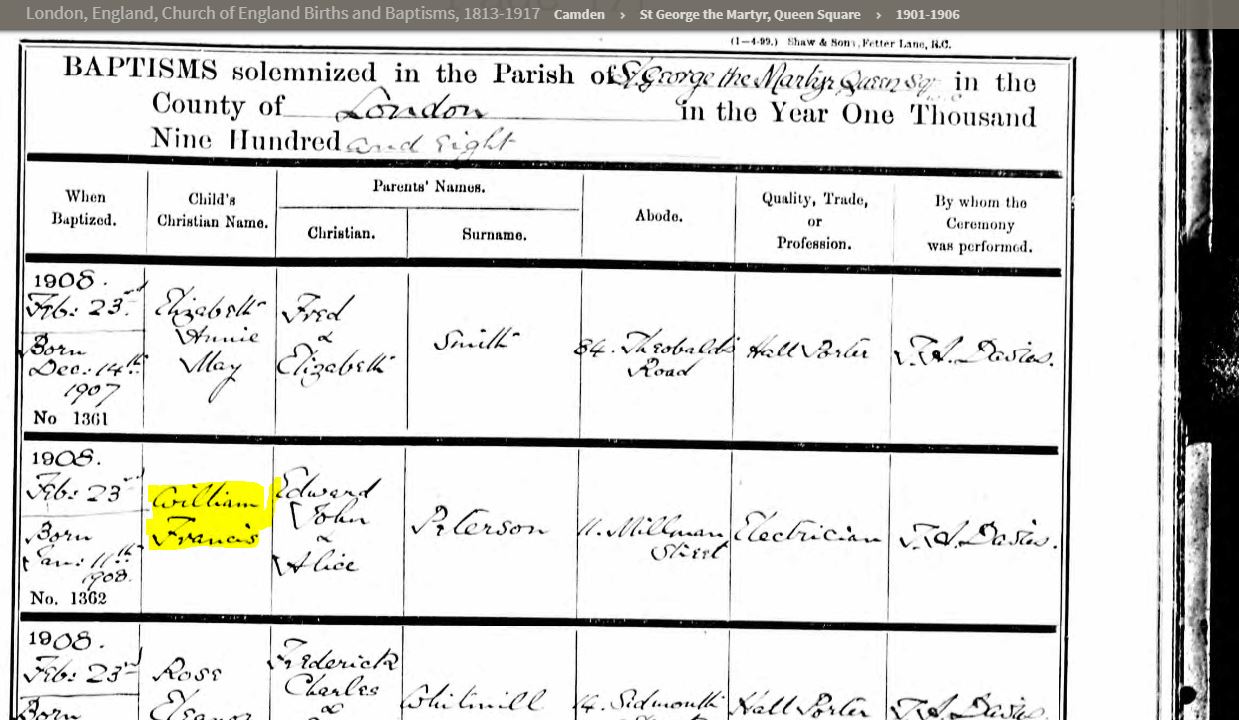 London, England, Church of England Births and Baptisms, 1813-1917 Camden › St George the Martyr, Queen Square › 1901-1906
(1—4-99.) Shaw & Sons, Fetter Lane, E.C.
BAPTISMS solemnized in the Parish of St George the Martyr Queen Sq in the
County of London in the Year One Thousand
Nine Hundred and Eight
When Baptized.
Child's Christian Name.
Parents' Names.
Christian.
Surname.
Abode.
Quality, Trade, or Profession.
By whom the Ceremony was performed.
1908.
Feb: 23rd
Born
Dec: 14th
1907
No 1361
Elizabeth
Annie
May
Fred
&
Elizabeth
Smith
84. Theobalds
Road
Hall Porter
Davies.
1908.
Feb: 23rd
Born
Jan: 11th
1908.
No. 1362
William
Francis
Edward
John
&
Alice
Peterson
11. Millman
Street
Electrician
Davies.
1908.
Feb: 23rd
Born
Rose
Eleanor
Frederick
Charles
&
Whitmill
14. Sidmouth
Hall Porter
Davies.